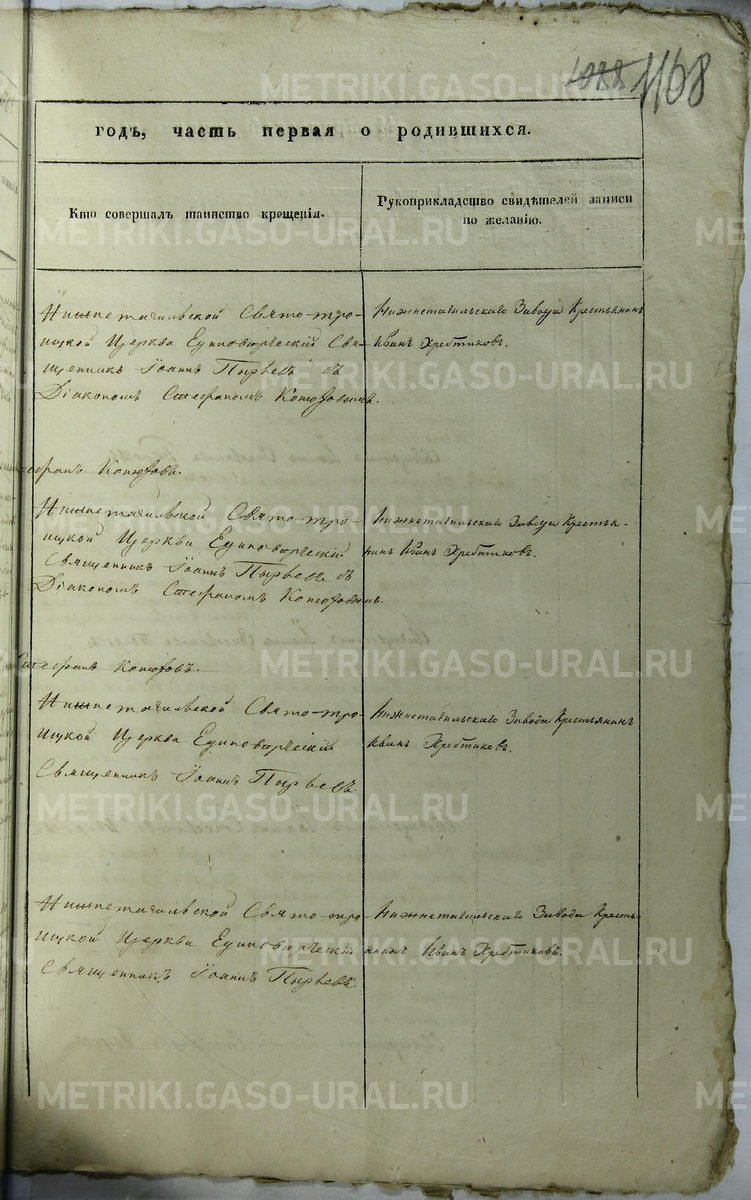 1088 1168
METRIKI.GASO-URAL.RU
годъ, часть первая о родившихся.
Кто совершалъ таинство крещенія.
Рукоприкладство свидѣтелей записи
по желанію.
Нижнетагильской Свято-тро-
ицкой Церкви Единовѣрческій Свя-
щенникъ Іоаннъ Пырьевъ съ
Діакономъ Стефаномъ
Нижнетагильскаго Завода Крестьянинъ
Иванъ Хребтиковъ.
Нижнетагильской Свято-тро-
ицкой Церкви Единовѣрческій
Священникъ Іоаннъ Пырьевъ съ
Діакономъ Стефаномъ
Нижнетагильскаго Завода Крестья-
нинъ Иванъ Хребтиковъ.
Стефанъ
Нижнетагильской Свято-тро-
ицкой Церкви Единовѣрческій
Священникъ Іоаннъ Пырьевъ.
Нижнетагильскаго Завода Крестьянинъ
Иванъ Хребтиковъ.
Нижнетагильской Свято-тро-
ицкой Церкви Единовѣрческій
Священникъ Іоаннъ Пырьевъ.
Нижнетагильскаго Завода Кресть-
янинъ Иванъ Хребтиковъ.